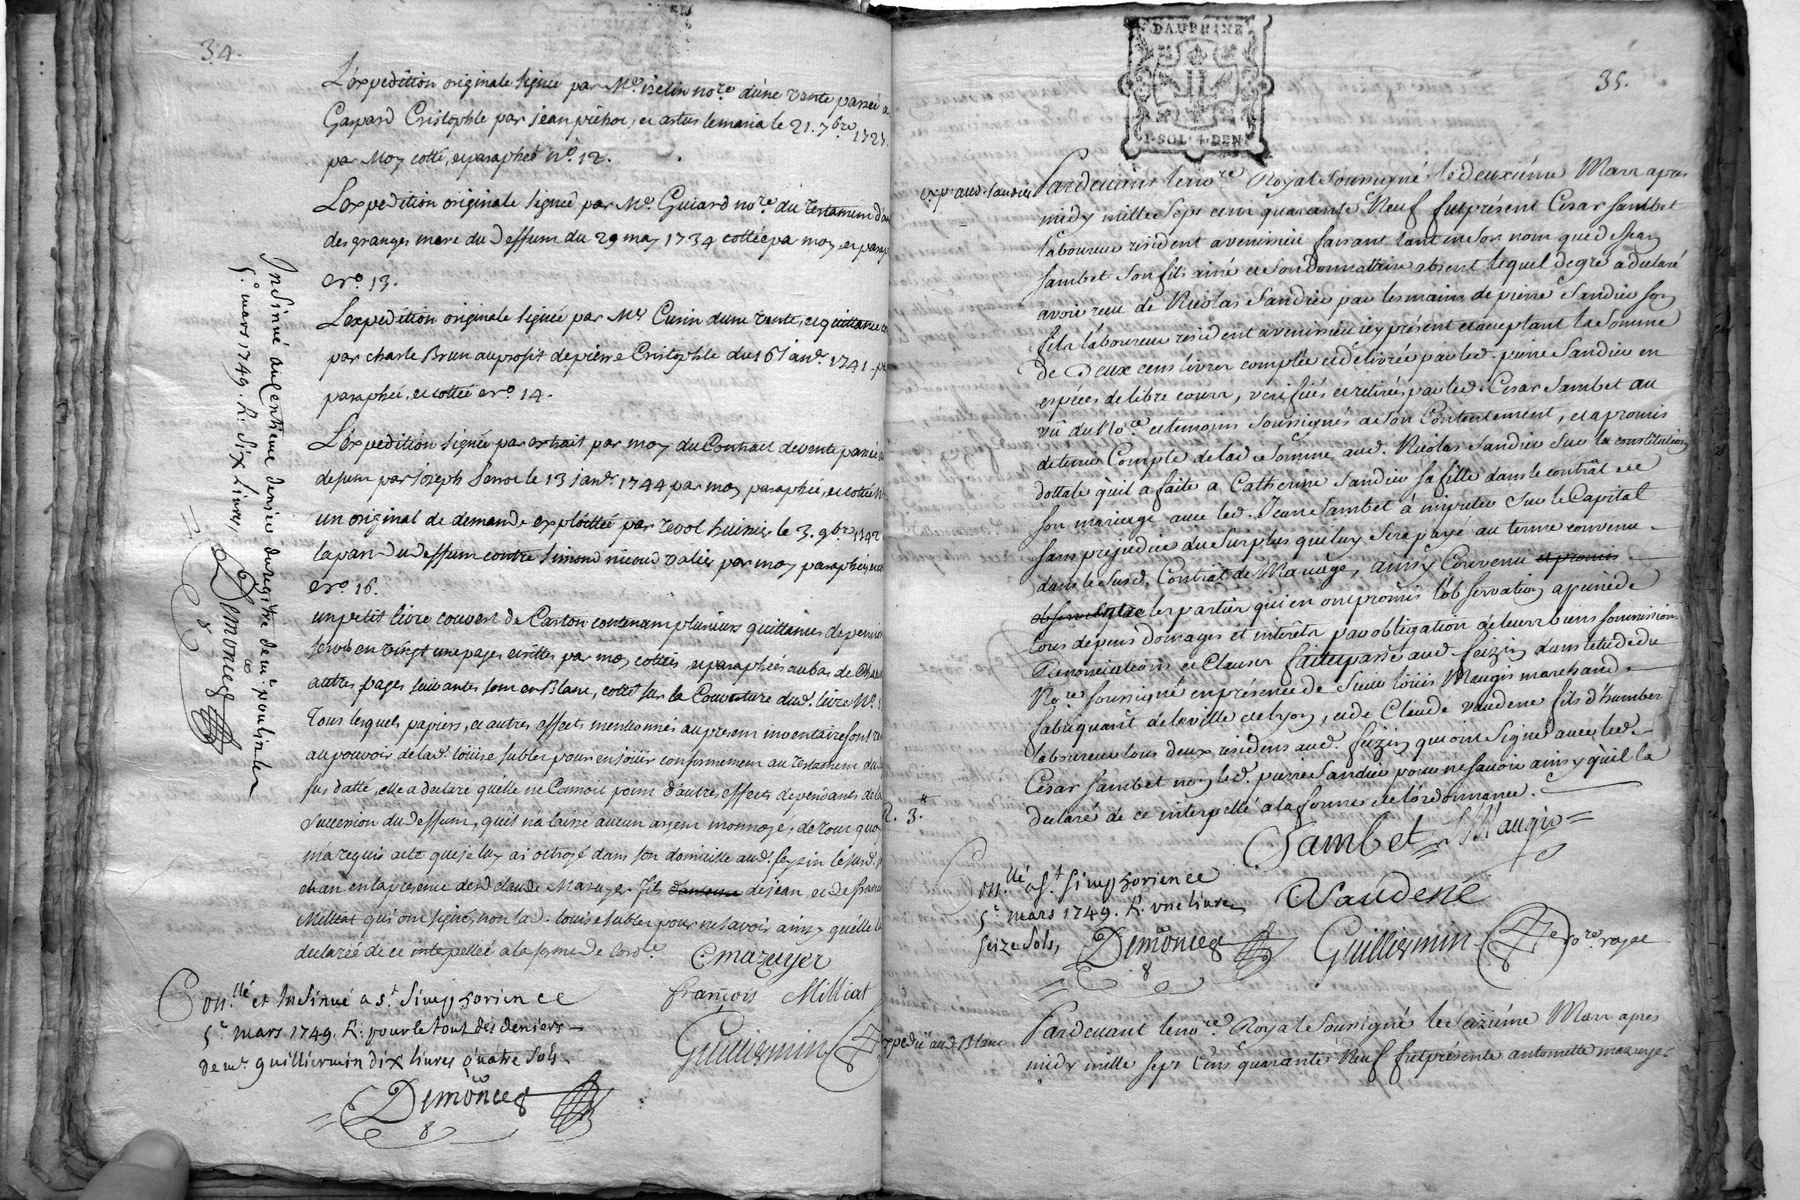 34.
L'expedition originale signée par Me. nore d'une vente passée a
Gaspard Cristophle par jean et le 21. 7bre 1727.
par Moy cotté, et paraphée no. 12.
L'expedition originale signée par Me. Guiard nore. du Testament d'
des granges mere du Deffunt du 29 may 1734 cottée pa moy, et para
ero. 13.
L'expedition originale signée par Me Cunin d'une vente, et quittance
par charle Brun au profit de pierre Cristophle du 16 janr. 1741. p
paraphée, et cottée ero 14.
L'expedition signée par extrait par moy du Contract de vente passée
defunt par joseph le 13 janr. 1744 par moy paraphée, et cottée
un original de demande exploittée par Revol huissier le 3. 9bre 1742
la part du deffunt contre Simond nicoud par moy paraphée,
ero. 16.
un petit livre couvert de Carton contenant plusieurs quittances de
en vingt une pages ecrittes par moy cottées, et paraphées au bas de Cha
autres pages suivantes sont en Blanc, cotté sur la Couverture dud. livre No. 1
Tous lesquels papiers, et autres effets mentionnés au present inventaire sont re
au pouvoir de lad. louise sublet pour en jöuir conformement au testament du
sus datté, elle a declaré quelle ne Connoit point d'autres effets dependants de la
succession du deffunt, qu'il n'a laissé aucun argent monnoyé, de tout quoy
m'a requis acte que je luy ai octroyé dans son domicille aud. feyzin le susd.
et an en la presence de sr. claude Mazuyer fils de jean, et de francois
Milliat qui ont signé, non lad. louise sublet pour ne savoir ainsy quelle l
declarée de ce interpellée a la forme de l'ordce.
Cmazuyer
françois Milliat
Guilliermin
Conllé et Insinué a St. Simphorience
5e mars 1749. R. pour le tout des deniers
de mr. guilliermin dix livres quatre sols
Demonceg
Insinué au Centieme denier du registre de mr. poulinter
5e mars 1749. R. Six Livres
Demonceg
DAUPHINE
1. SOL. 4. DEN
35.
exp. aud. Sandier
Pardevant le nore Royal Soussigné le deuxième Mars apres
midy mille sept cent quarante Neuf fut présent Cesar Sambet
laboureur resident a venissieu faisant tant en son nom que de jean
Sambet son fils ainé et son donnattaire absent lequel de gré a declaré
avoir reçu de Nicolas Sandier par les mains de pierre Sandier son
fils laboureur resident a venissieu icy présent et acceptant la somme
de Deux cens livres comptée et délivrée par led. pierre Sandier en
espéces de libre cours, vérifiés et retirés par led. Cesar Sambet au
vû du No.re et temoins soussignés de son Contentement, et a promis
de tenir Compte de lad. somme aud. Nicolas Sandier sur la constitution
dottale qu'il a faite a Catherine Sandier sa fille dans le contrât de
son mariage avec led. Jean Sambet à imputer sur le Capital
sans préjudice du surplus qui luy sera payé au terme convenu
dans le susd. Contrât de Mariage, ainsy Convenu et promis
observer entre les parties qui en ont promis l'observation a peine de
tous depens domages et intérêts par obligation de leurs biens soumissions
renonciations et Clauses fait et passé aud. feizin dans l'etude du
No.re soussigné en présence de sieur loüis Maugis marchand
fabriquant de la ville de lyon, et de Claude vaudene fils d'humbert
laboureur tous deux residens aud. feizin qui ont signé avec led.
Cesar Sambet non led. pierre Sandier pour ne savoir ainsy qu'il la
declaré de ce interpellé a la forme de l'ordonnance.
R. 3.tt
Sambet
Maugis
Vaudené
Conllé a St Simphorience
5e mars 1749. R. une livre
seize sols,
Demonceg
Guilliermin
nore. royal
Expedié aud. Blanc
Pardevant le nore. Royal Soussigné le seizième Mars apres
midy mille sept Cens quarante Neuf fut présente antoinette mazuyer